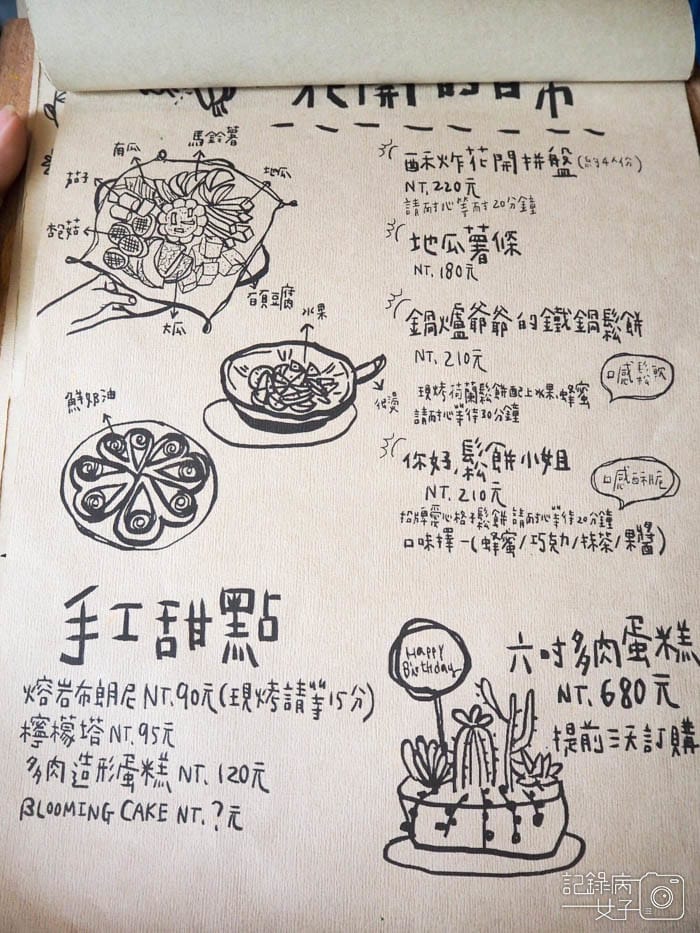 花開的日常
南瓜
馬鈴薯
茄子
地瓜
杏鮑菇
百頁豆腐
大瓜
水果
很燙
鮮奶油
酥炸花開拼盤(約4人份)
NT. 220元
請耐心等耐20分鐘
地瓜薯條
NT. 180元
鍋爐爺爺的鐵鍋鬆餅
NT. 210元
口感鬆軟
現烤荷蘭鬆餅配上水果.蜂蜜
請耐心等待30分鐘
你好,鬆餅小姐
NT. 210元
口感酥脆
招牌愛心格子鬆餅 請耐心等待20分鐘
口味擇一(蜂蜜/巧克力/抹茶/果醬)
手工甜點
熔岩布朗尼 NT. 90元(現烤請等15分)
檸檬塔 NT. 95元
多肉造形蛋糕 NT. 120元
BLOOMING CAKE NT. ?元
Happy
Birthday
六吋多肉蛋糕
NT. 680元
提前三天訂購
記錄病
女子